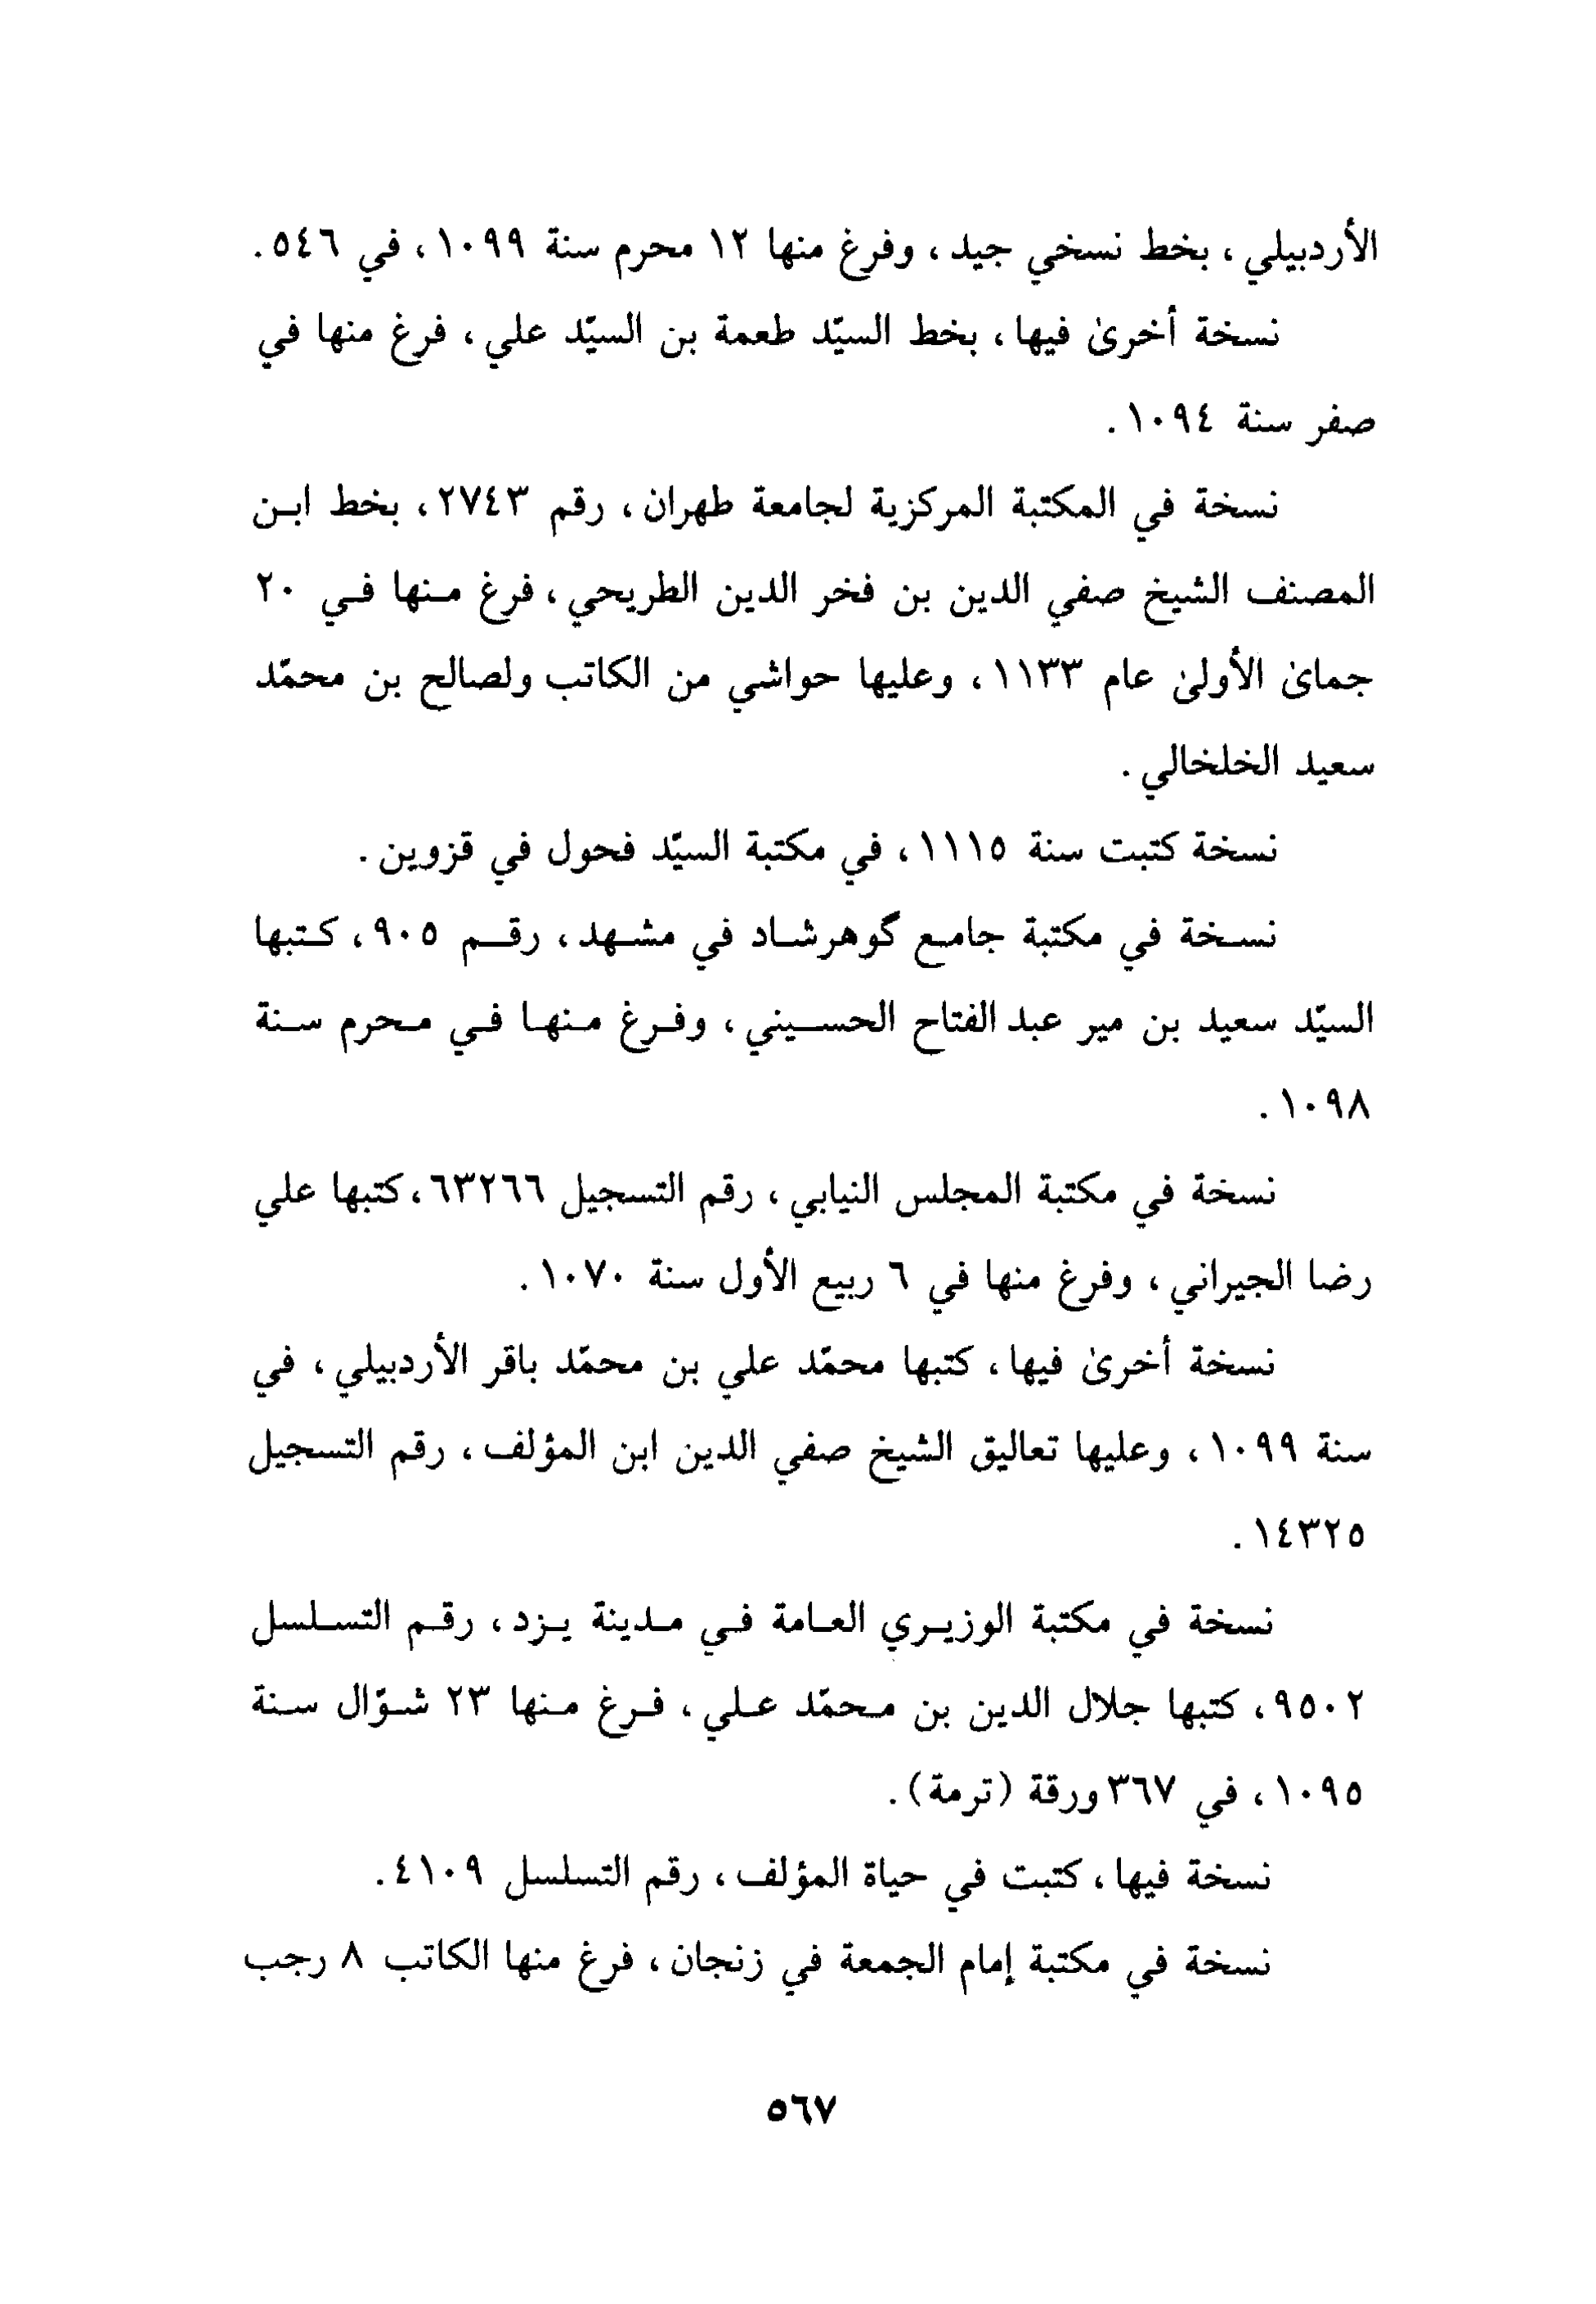 الأردبيلي ، بخط نسخي جيد ، وفرغ منها ١٢ محرم سنة ١٠٩٩ ، في ٥٤٦ .
نسخة أخرىٰ فيها ، بخط السيّد طعمة بن السيّد علي ، فرغ منها في
صفر سنة ١٠٩٤ .
نسخة في المكتبة المركزية لجامعة طهران ، رقم ٢٧٤٣ ، بخط ابن
المصنف الشيخ صفي الدين بن فخر الدين الطريحي ، فرغ منها في ٢٠
جمائ الأولىٰ عام ١١٣٣ ، وعليها حواشي من الكاتب ولصالح بن محمّد
سعيد الخلخالي .
نسخة كتبت سنة ١١١٥ ، في مكتبة السيّد فحول في قزوين .
نسخة في مكتبة جامع گوهرشاد في مشهد ، رقم ٩٠٥ ، كتبها
السيّد سعيد بن مير عبد الفتاح الحسيني ، وفرغ منها في محرم سنة
١٠٩٨ .
نسخة في مكتبة المجلس النيابي ، رقم التسجيل ٦٣٢٦٦ ، كتبها علي
رضا الجيراني ، وفرغ منها في ٦ ربيع الأول سنة ١٠٧٠ .
نسخة أخرىٰ فيها ، كتبها محمّد علي بن محمّد باقر الأردبيلي ، في
سنة ١٠٩٩ ، وعليها تعاليق الشيخ صفي الدين ابن المؤلف ، رقم التسجيل
١٤٣٢٥ .
نسخة في مكتبة الوزيري العامة في مدينة يزد ، رقم التسلسل
٩٥٠٢ ، كتبها جلال الدين بن محمّد علي ، فرغ منها ٢٣ شوّال سنة
١٠٩٥ ، في ٣٦٧ ورقة (ترمة) .
نسخة فيها ، كتبت في حياة المؤلف ، رقم التسلسل ٤١٠٩ .
نسخة في مكتبة إمام الجمعة في زنجان ، فرغ منها الكاتب ٨ رجب
٥٦٧